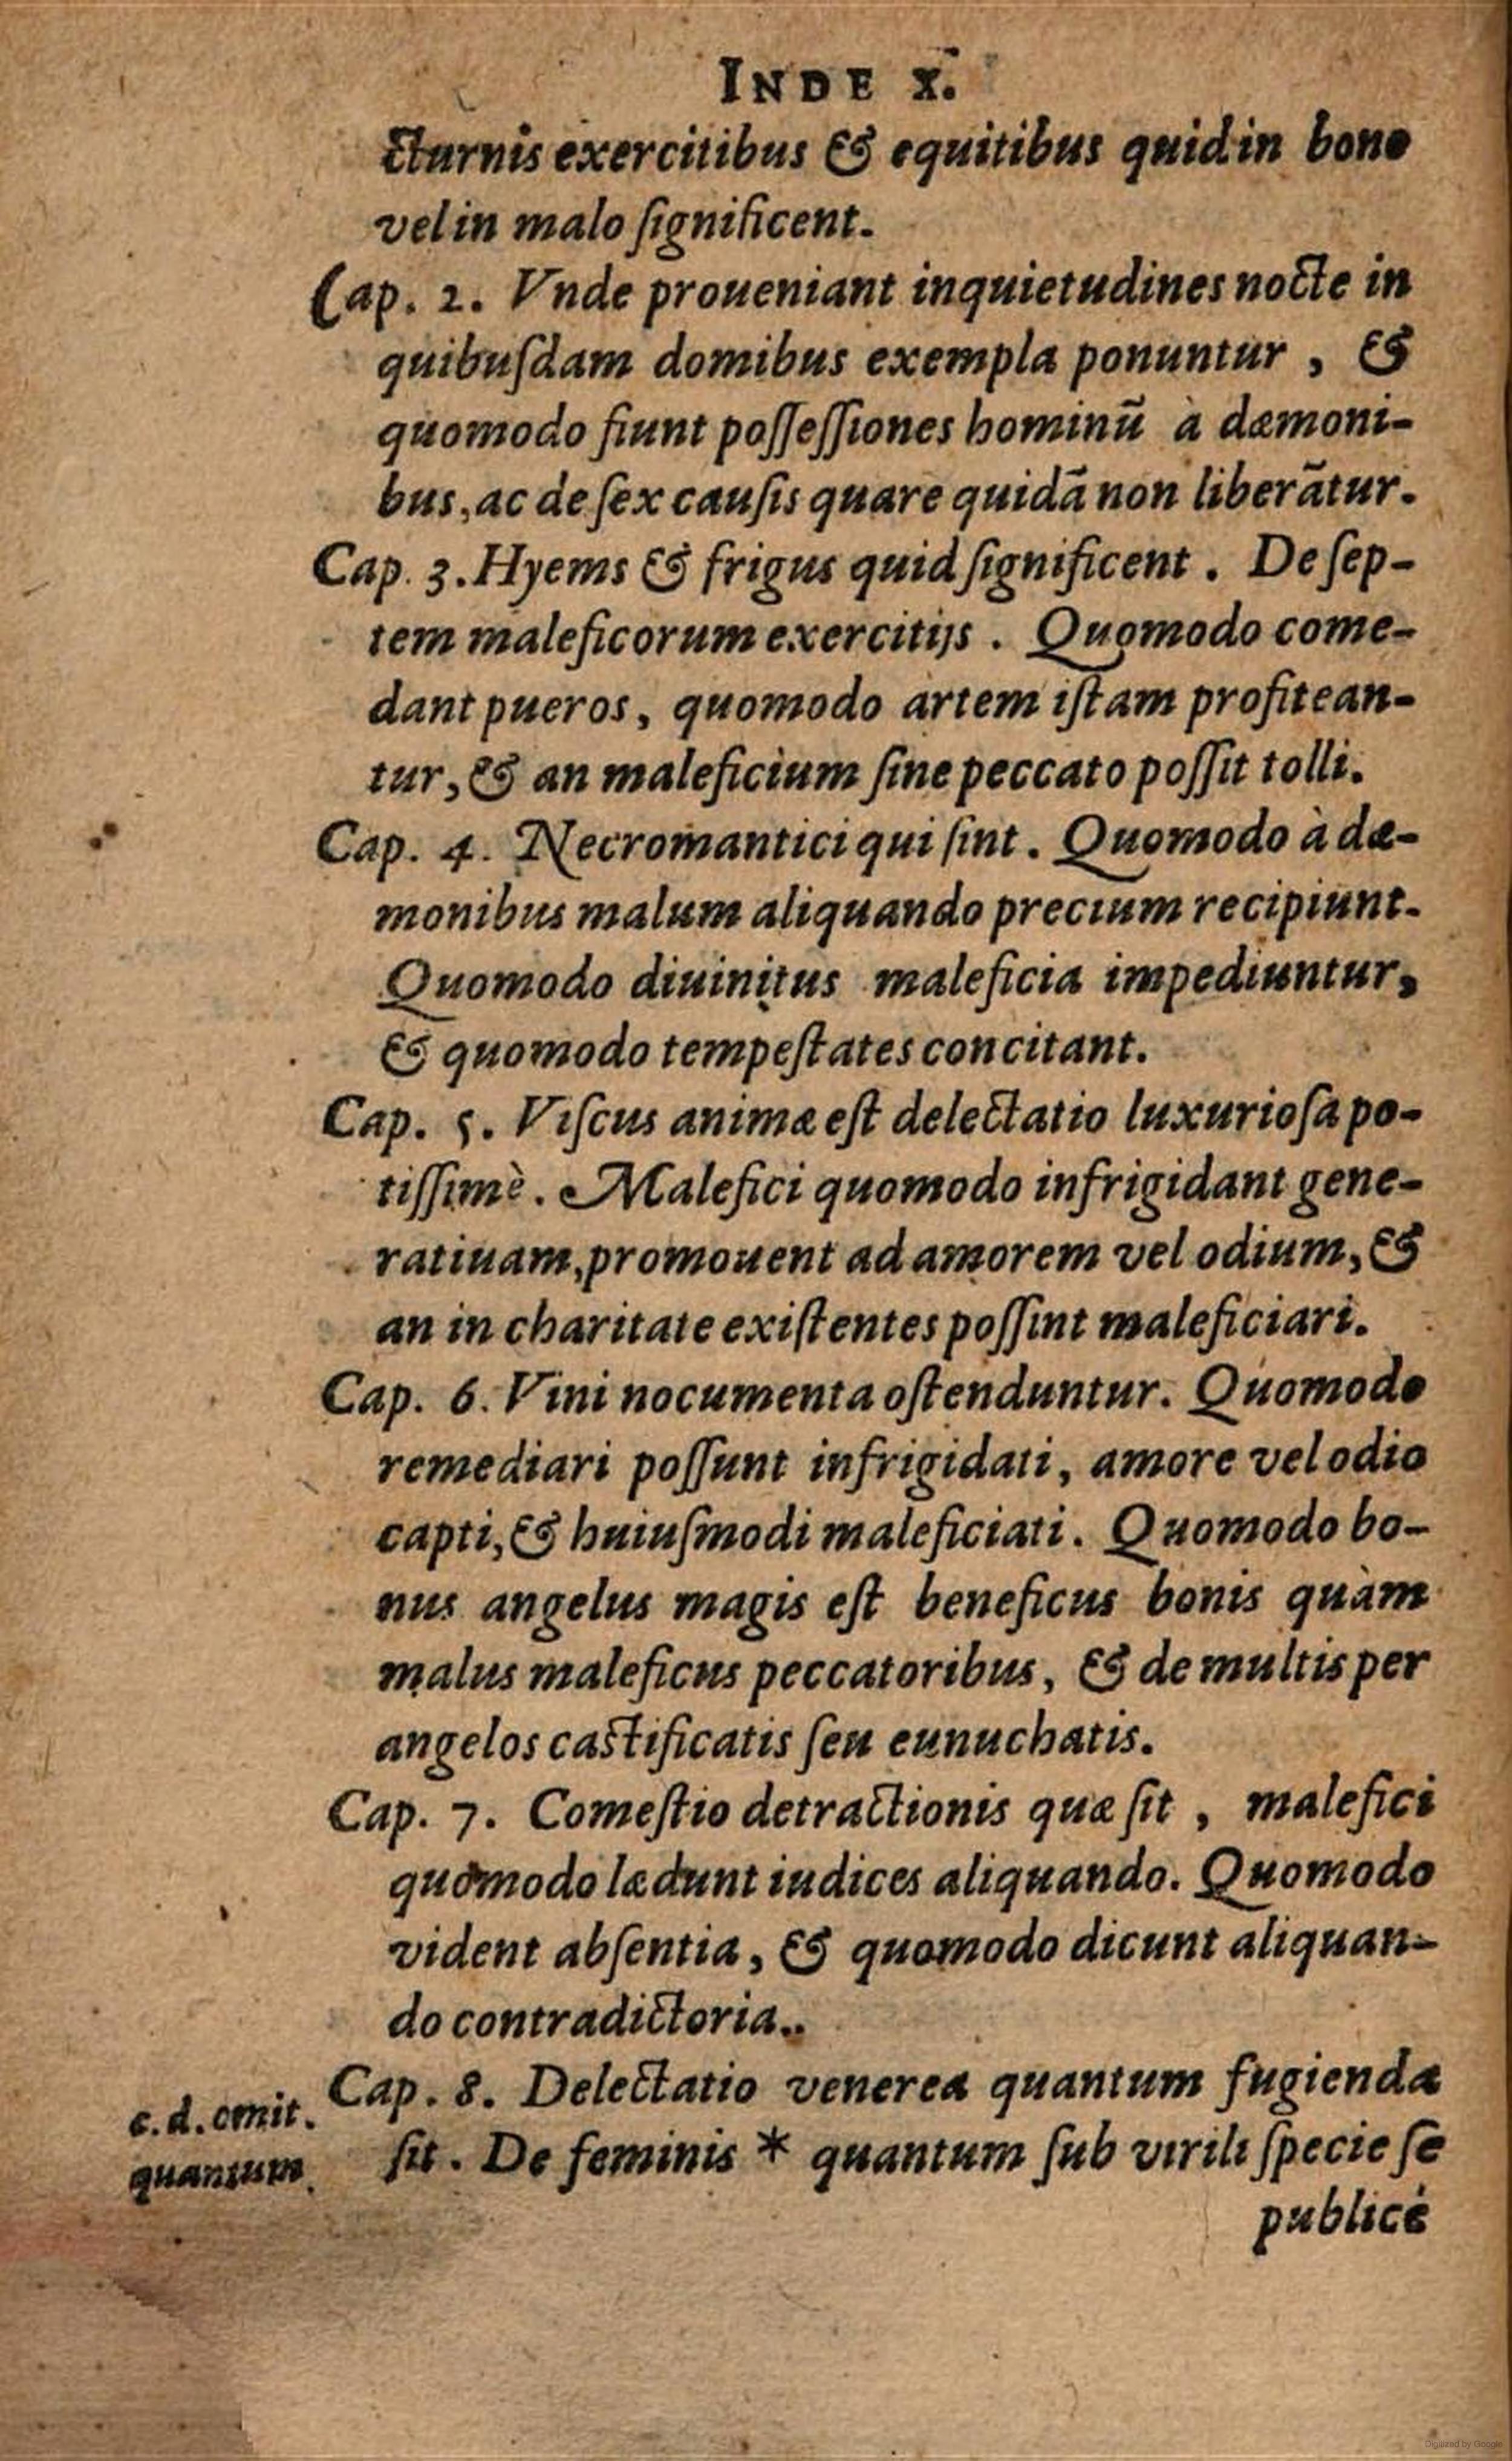 INDEX.
cturnis exercitibus & equitibus quid in bono
vel in malo ſignificent.
Cap. 2. Vnde proueniant inquietudines nocte in
quibuſdam domibus exempla ponuntur, &
quomodo fiunt poſſeſſiones hominū à dæmoni-
bus, ac de ſex cauſis quare quidā non liberātur.
Cap. 3. Hyems & frigus quid ſignificent. De ſep-
tem maleficorum exercitijs. Quomodo come-
dant pueros, quomodo artem iſtam profitean-
tur, & an maleficium ſine peccato poſſit tolli.
Cap. 4. Necromantici qui ſint. Quomodo à dæ-
monibus malum aliquando precium recipiunt.
Quomodo diuinitus maleficia impediuntur,
& quomodo tempeſtates concitant.
Cap. 5. Viſcus animæ eſt delectatio luxurioſa po-
tiſſimè. Malefici quomodo infrigidant gene-
ratiuam, promouent ad amorem vel odium, &
an in charitate exiſtentes poſſint maleficiari.
Cap. 6. Vini nocumenta oſtenduntur. Quomodo
remediari poſſunt infrigidati, amore vel odio
capti, & huiuſmodi maleficiati. Quomodo bo-
nus angelus magis eſt beneficus bonis quàm
malus maleficus peccatoribus, & de multis per
angelos caſtificatis ſeu eunuchatis.
Cap. 7. Comeſtio detractionis quæ ſit, malefici
quomodo lædunt iudices aliquando. Quomodo
vident abſentia, & quomodo dicunt aliquan-
do contradictoria..
Cap. 8. Delectatio venerea quantum fugienda
ſit. De feminis * quantum ſub virili ſpecie ſe
c.d. omit.
quantum.
publicè
Digitized by Google